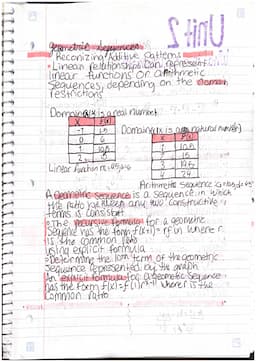 Unit 2
Geometric Sequences
Reconizing Additive Patterns
• Linear relationships can represent
linear functions or arithmetic
sequences, depending on the domain
restrictions
Domain: x is a real number
Domain: x is a natural number
x f(x)
-1 1.5
0 6
1 10.5
2 15
x f(x)
1 10.5
2 15
3 19.5
4 24
Linear function
Arithmetic Sequence
A Geometric Sequence is a sequence in which
the ratio between any two constructive
terms is consistant
• The recursive formula for a geometric
Sequence has the form f(x+1) = rf(x) where r
is the common ratio
using explicit formula
• Determine the 10th term of the geometric
sequence represented by the graph
An explicit formula for a Geometric Sequence
has the form f(x) = f(1) where r is the
common ratio